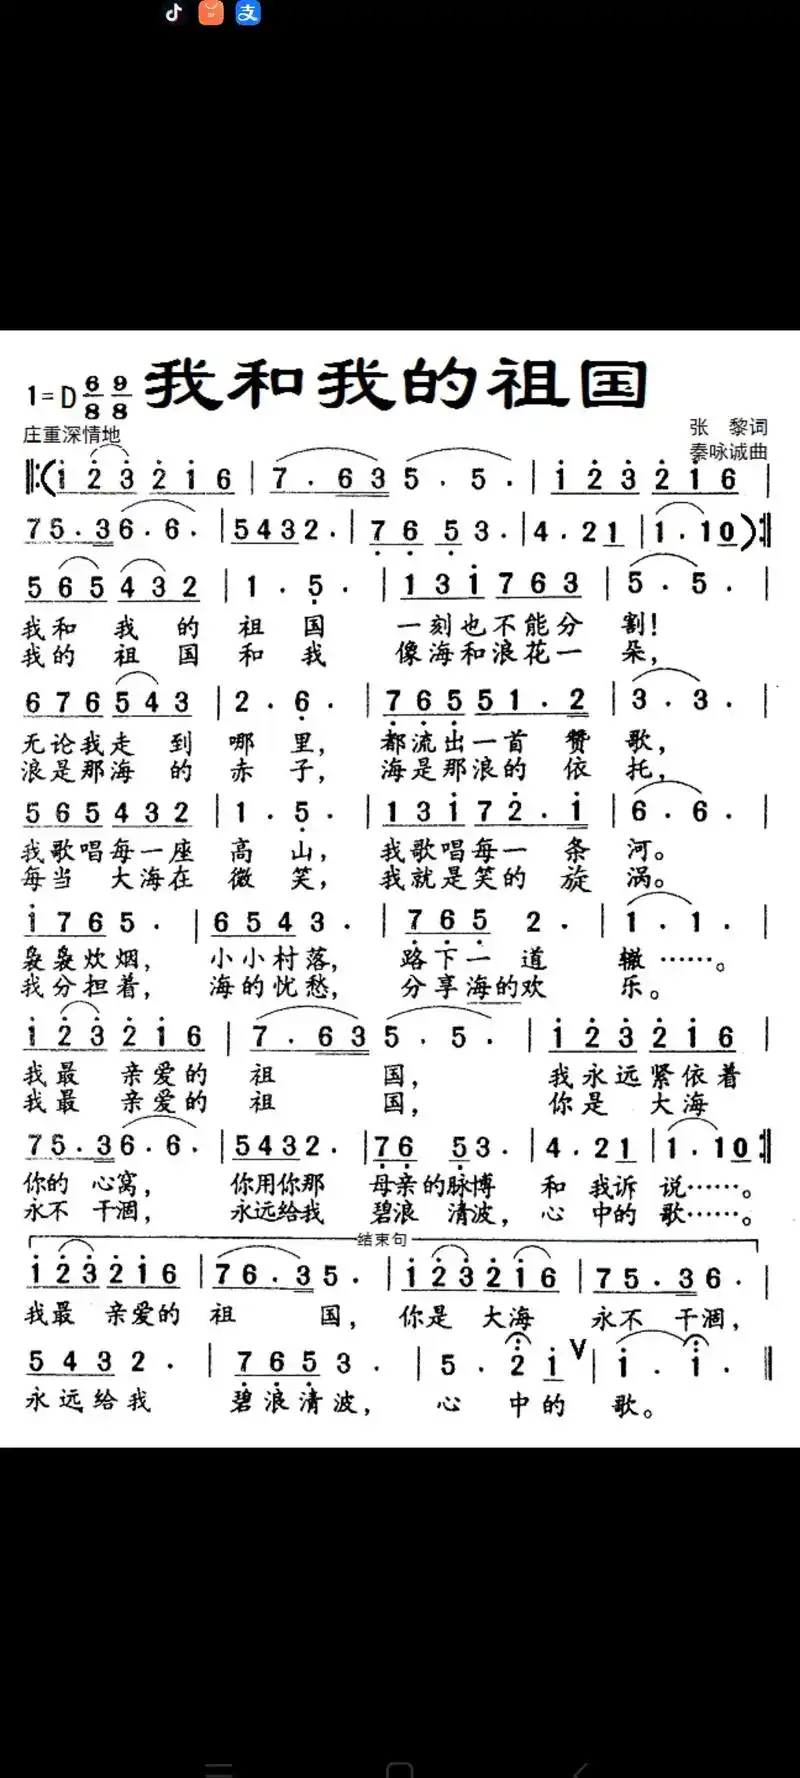 我和我的祖国
1=D 6/8 9/8
庄重深情地
张 黎词
秦咏诚曲
‖:(i̇ 2̇ 3̇ 2̇ i̇ 6 | 7 . 6 3 5 . 5 . | i̇ 2̇ 3̇ 2̇ i̇ 6 |
7 5 . 3 6 . 6 . | 5 4 3 2 2 . | 7̣ 6̣ 5̣ 3 . | 4 . 2 1 | 1 . 1 0 ) :‖
5 6 5 4 3 2 | 1 . 5̣ . | 1 3 i̇ 7 6 3 | 5 . 5 . |
我和 我 的 祖 国 一刻也不能分 割!
我的 祖 国 和 我 像海和浪花一 朵,
6 7 6 5 4 3 | 2 . 6̣ . | 7̣ 6̣ 5̣ 5 1 . 2 | 3 . 3 . |
无论我走 到 哪 里, 都流出一首 赞 歌,
浪是那海 的 赤 子, 海是那浪的 依 托,
5 6 5 4 3 2 | 1 . 5̣ . | 1 3 i̇ 7 2̇ . i̇ | 6 . 6 . |
我歌唱每一座 高 山, 我歌唱每一 条 河。
每当 大海在 微 笑, 我就是笑的 旋 涡。
i̇ 7 6 5 . | 6 5 4 3 . | 7̣ 6̣ 5̣ 2 . | 1 . 1 . |
袅袅炊烟, 小小村落, 路下一 道 辙……。
我分担着, 海的忧愁, 分享海的欢 乐。
i̇ 2̇ 3̇ 2̇ i̇ 6 | 7 . 6 3 5 . 5 . | i̇ 2̇ 3̇ 2̇ i̇ 6 |
我最 亲爱的 祖 国, 我永远紧依着
我最 亲爱的 祖 国, 你是 大海
7 5 . 3 6 . 6 . | 5 4 3 2 . | 7̣ 6̣ 5̣ 3 . | 4 . 2 1 | 1 . 1 0 :‖
你的 心窝, 你用你那 母亲的脉搏 和 我诉 说……。
永不 干涸, 永远给我 碧浪 清波, 心 中的 歌……。
结束句
i̇ 2̇ 3̇ 2̇ i̇ 6 | 7 6 . 3 5 . | i̇ 2̇ 3̇ 2̇ i̇ 6 | 7 5 . 3 6 . |
我最 亲爱的 祖 国, 你是 大海 永不 干涸,
5 4 3 2 . | 7̣ 6̣ 5̣ 3 . | 5 . 2̇ i̇ V | i̇ . i̇ . ‖
永远给我 碧浪清波, 心 中的 歌。